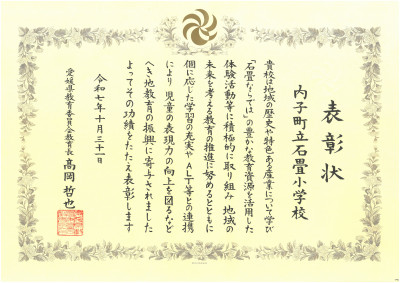 表彰状
内子町立石畳小学校
貴校は地域の歴史や特色ある産業について学び
「石畳ならでは」の豊かな教育資源を活用した
体験活動等に積極的に取り組み 地域の
未来を考える教育の推進に努めるとともに
個に応じた学習の充実やALT等との連携
により 児童の表現力の向上を図るなど
へき地教育の振興に寄与されました
よってその功績をたたえ表彰します
令和七年十月三十一日
愛媛県教育委員会教育長 高岡哲也